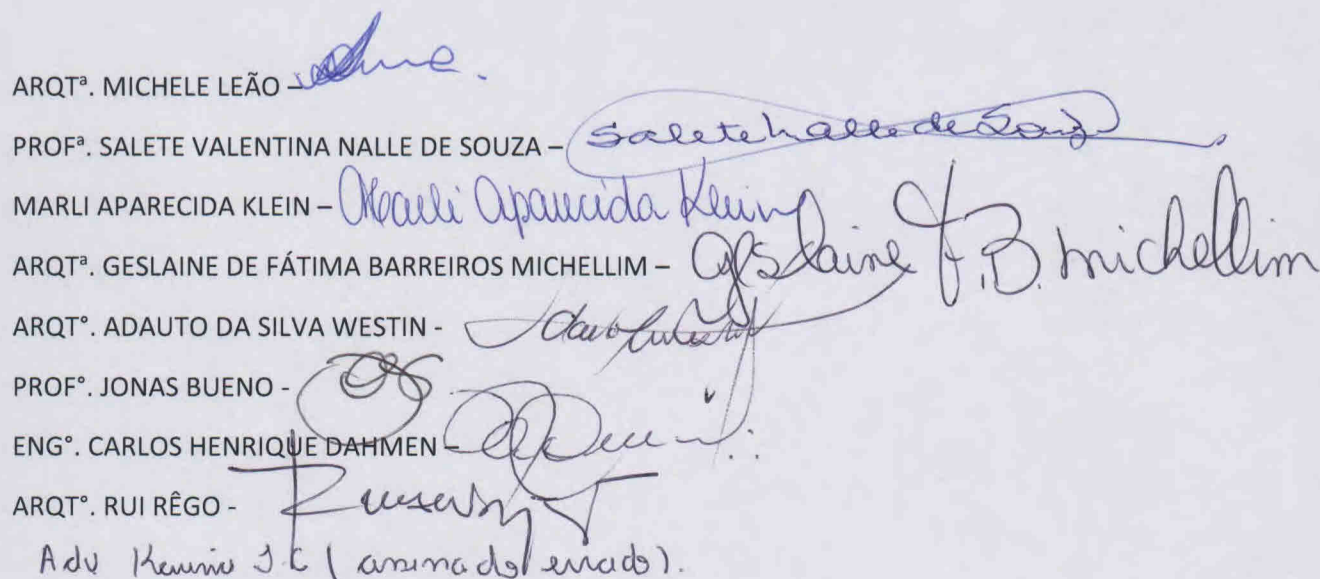 ARQTª. MICHELE LEÃO –
PROFª. SALETE VALENTINA NALLE DE SOUZA – Salete Nalle de Souza
MARLI APARECIDA KLEIN – Marli Aparecida Klein
ARQTª. GESLAINE DE FÁTIMA BARREIROS MICHELLIM – Geslaine F. B. Michellim
ARQT°. ADAUTO DA SILVA WESTIN -
PROF°. JONAS BUENO -
ENG°. CARLOS HENRIQUE DAHMEN –
ARQT°. RUI RÊGO -
Adv (assinado errado).